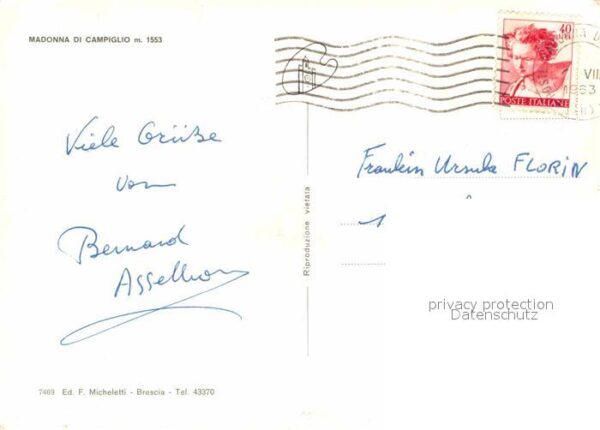 MADONNA DI CAMPIGLIO m. 1553
40
POSTE ITALIANE
VII
1963
Viele Grüße
von
Bernard
Riproduzione vietata
Fraulein Ursula FLORIN
1
privacy protection
Datenschutz
7469 Ed. F. Micheletti - Brescia - Tel. 43370